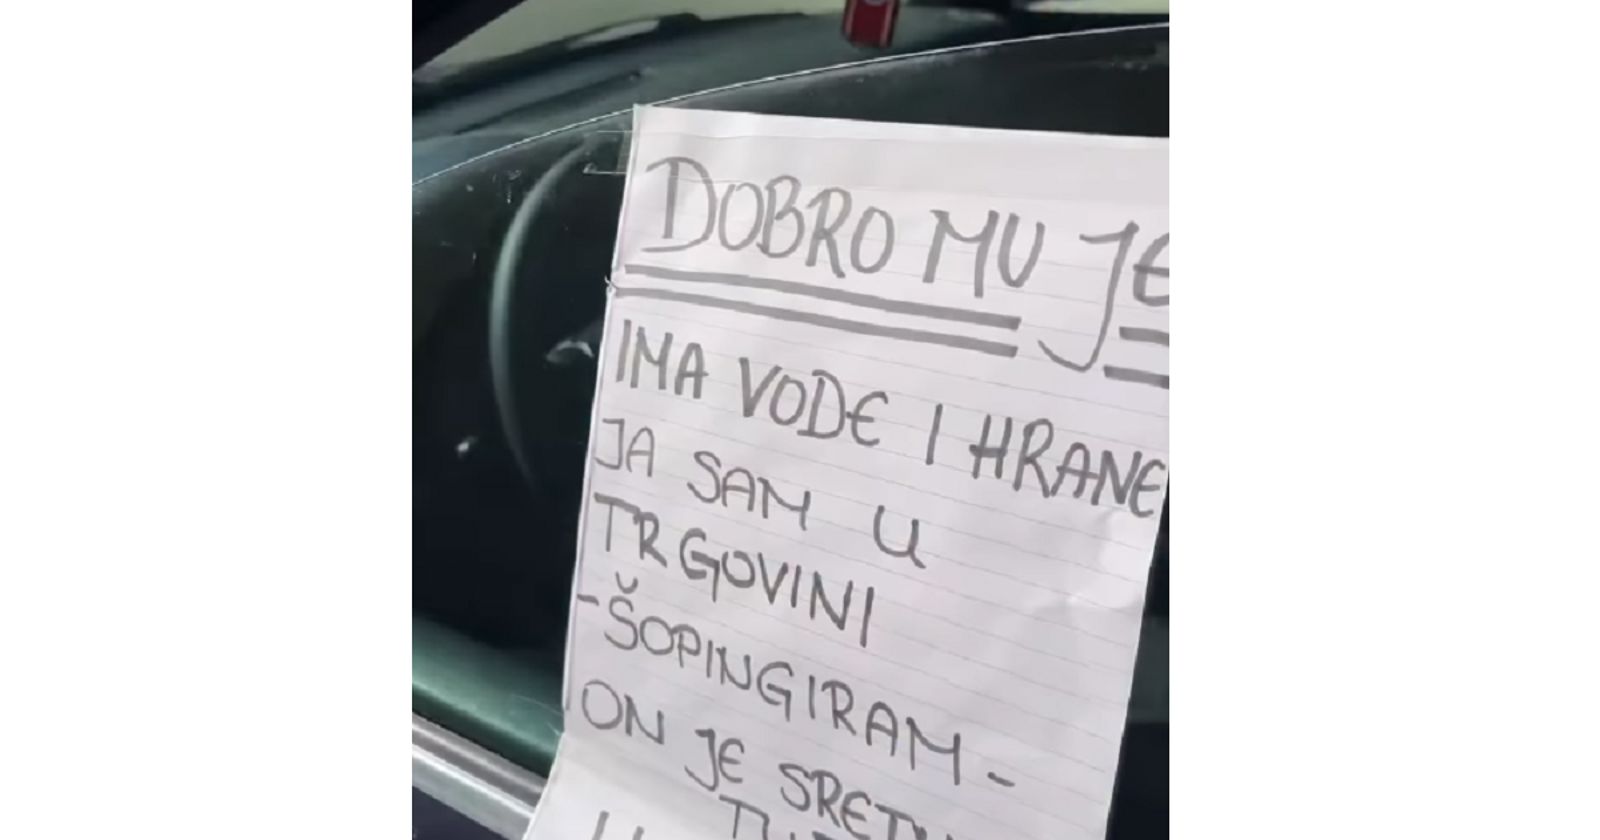 DOBRO MU JE
IMA VODE I HRANE
JA SAM U
TRGOVINI
-ŠOPINGIRAM-
ON JE